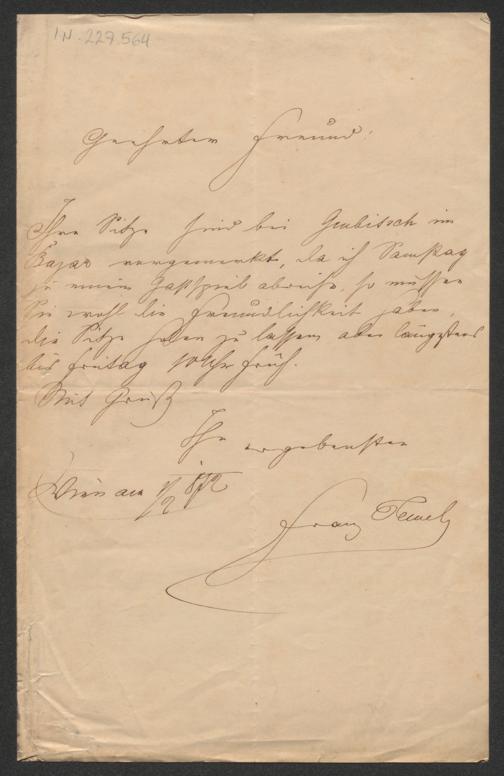 IN. 227.564
Geehrter Freund!
Ihre Sitze sind bei Grabitsch im
Bazar vorgemerkt, da ich Samstag
zu einem Gastspiel abreise, so müssen
Sie wohl die Freundlichkeit haben,
die Sitze holen zu lassen aber längstens
bis Freitag 10 Uhr früh.
Mit Gruß
Ihr ergebenster
Wien am
Franz Tewele